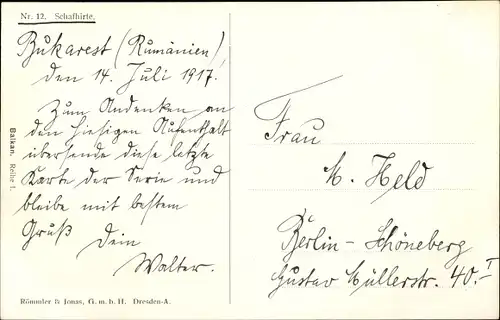 Nr. 12. Schafhirte.
Bukarest (Rumänien)
den 14. Juli 1917.
Zum Andenken an
den hiesigen Aufenthalt
übersende diese letzte
Karte der Serie und
bleibe mit bestem
Gruß Dein
Walter.
Balkan. Reihe 1.
Römmler & Jonas, G. m. b. H. Dresden-A.
Frau
M. Held
Berlin-Schöneberg
Gustav Müllerstr. 40. I